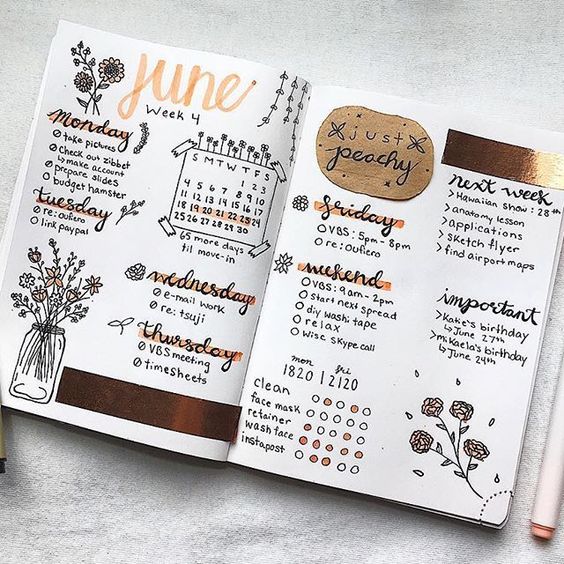 June
Week 4
monday
take pictures
check out zibbet
↳ make account
prepare slides
budget hamster
tuesday
re: oufiero
link paypal
S M T W T F S
1 2 3
4 5 6 7 8 9 10
11 12 13 14 15 16 17
18 19 20 21 22 23 24
25 26 27 28 29 30
65 more days
til move-in
wednesday
e-mail work
re: tsuji
thursday
VBS meeting
timesheets
just
peachy
friday
VBS: 5pm - 8pm
re: Oufiero
weekend
VBS: 9am - 2pm
start next spread
diy washi tape
relax
Wise Skype call
mon fri
clean
face mask
retainer
wash face
instapost
next week
> Hawaiian show: 28th
> anatomy lesson
> applications
> sketch flyer
> find airport maps
important
> Kate's birthday
↳ June 27th
> mikaela's birthday
↳ June 24th